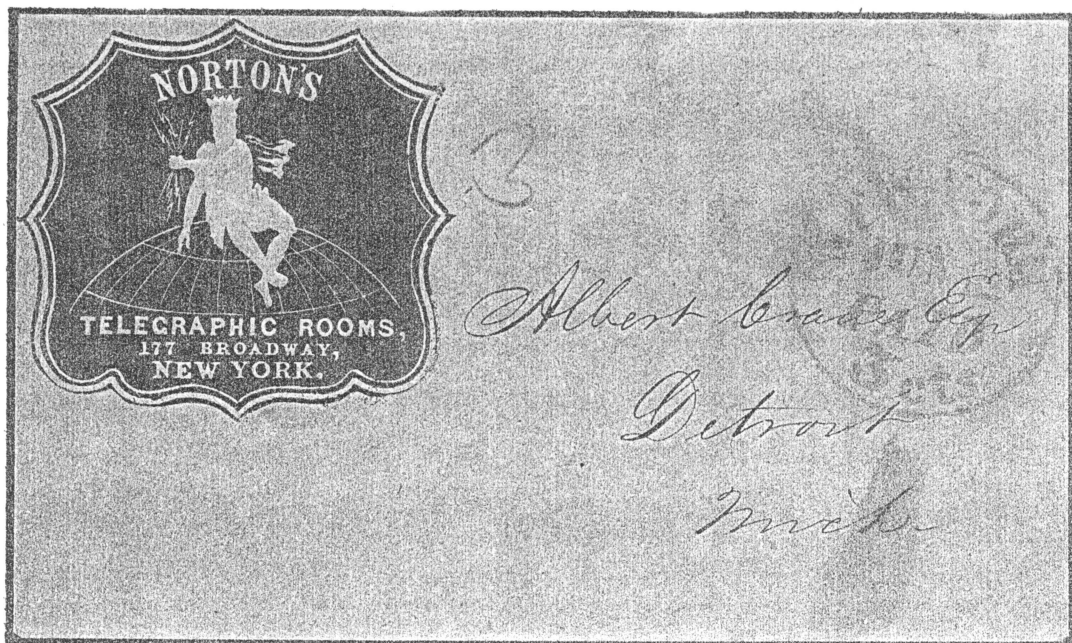 NORTON'S
TELEGRAPHIC ROOMS,
177 BROADWAY,
NEW YORK.
Albert Esq
Detroit
Mich